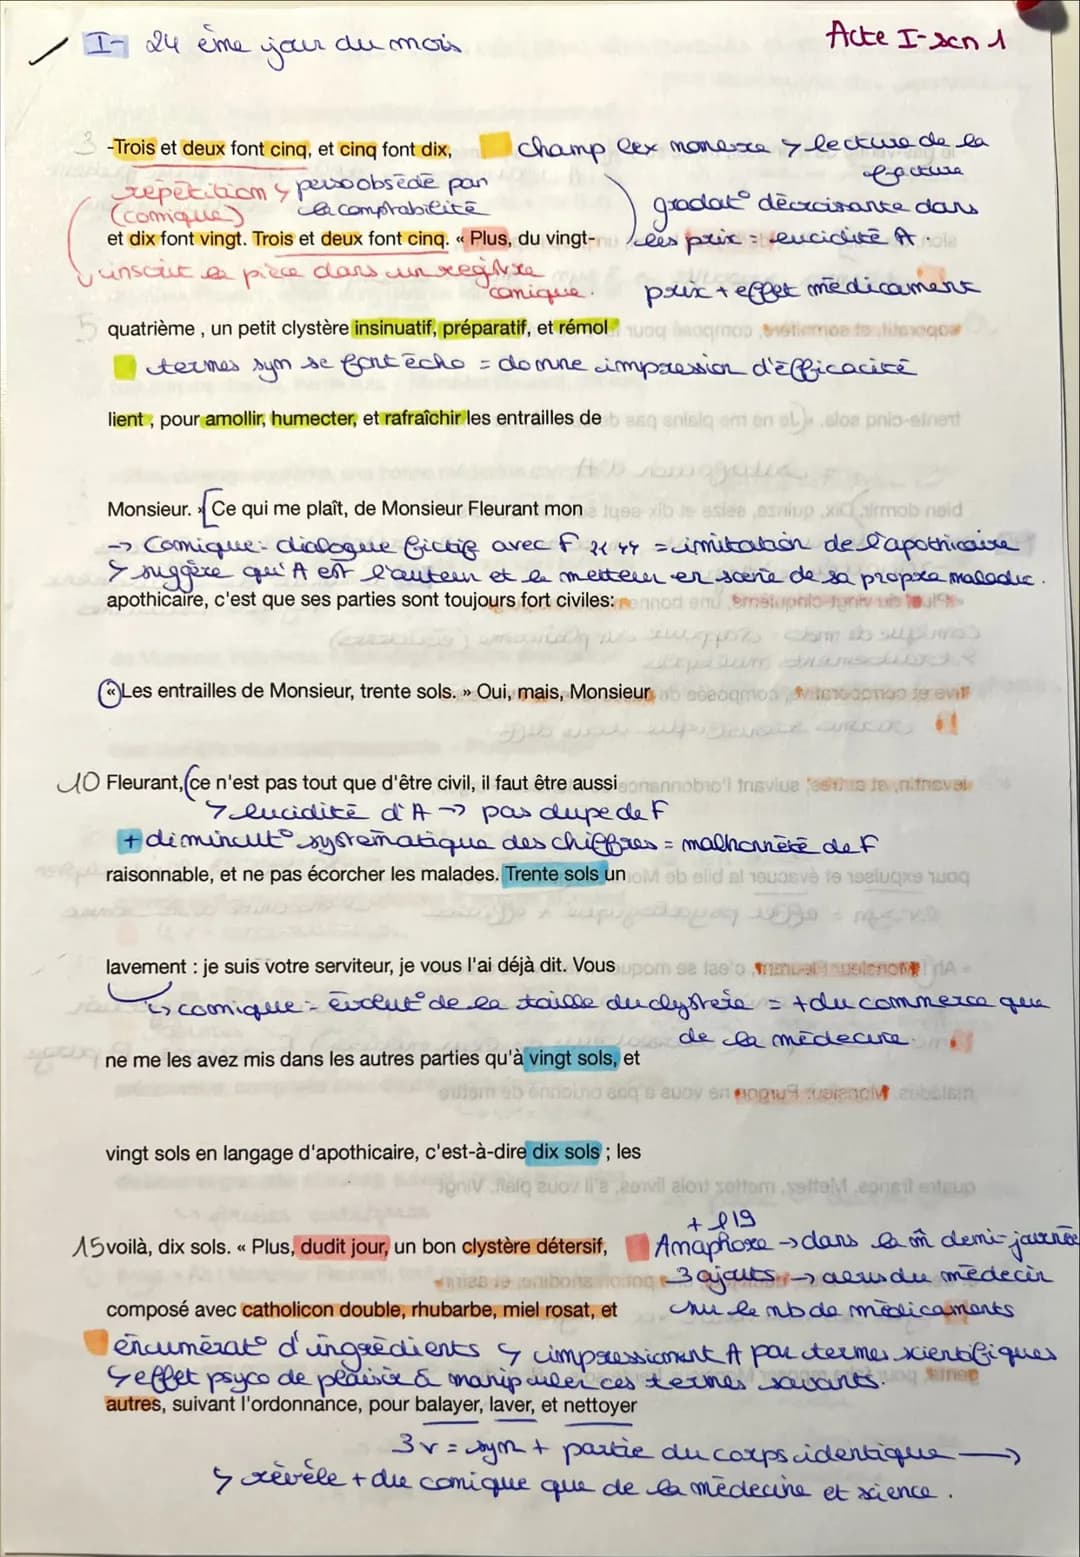 I- 24 ème jour du mois
Acte I-scn 1
3 -Trois et deux font cinq, et cinq font dix,
champ lex monerre > lecture de la
facture
répétition ↳ perso obsédé par
(comique) la comptabilité
gradat° décroisante dans
et dix font vingt. Trois et deux font cinq. « Plus, du vingt-
les prix = lucidité A.
inscrit la pièce dans un registre
comique.
prix + effet médicament
5 quatrième , un petit clystère insinuatif, préparatif, et rémol
termes sym se font écho = donne impression d'efficacité
lient , pour amollir, humecter, et rafraîchir les entrailles de
Monsieur. » [Ce qui me plaît, de Monsieur Fleurant mon
-> Comique: dialogue fictif avec F << >> = imitation de l'apothicaire
> suggère qu'A est l'auteur et le metteur en scène de sa propre maladie.
apothicaire, c'est que ses parties sont toujours fort civiles:
«Les entrailles de Monsieur, trente sols. » Oui, mais, Monsieur
10 Fleurant, (ce n'est pas tout que d'être civil, il faut être aussi
> lucidité d'A -> pas dupe de F
+ diminut° systématique des chiffres = malhonnêté de F
raisonnable, et ne pas écorcher les malades. Trente sols un
lavement : je suis votre serviteur, je vous l'ai déjà dit. Vous
↳ comique = évolut° de la taille du clystère = + du commerce que
de la médecine.
ne me les avez mis dans les autres parties qu'à vingt sols, et
vingt sols en langage d'apothicaire, c'est-à-dire dix sols ; les
+ l19
15 voilà, dix sols. « Plus, dudit jour, un bon clystère détersif,
Anaphore -> dans la m̂ demi-journée
3 ajouts -> du médecin
composé avec catholicon double, rhubarbe, miel rosat, et
sur le nb de médicaments
énumérat° d'ingrédients ↳ impressionent A par termes scientifiques
↳ effet psyco de plaisir à manipuler ces termes savants.
autres, suivant l'ordonnance, pour balayer, laver, et nettoyer
3 v = sym + partie du corps identique ->
↳ révèle + du comique que de la médecine et science.